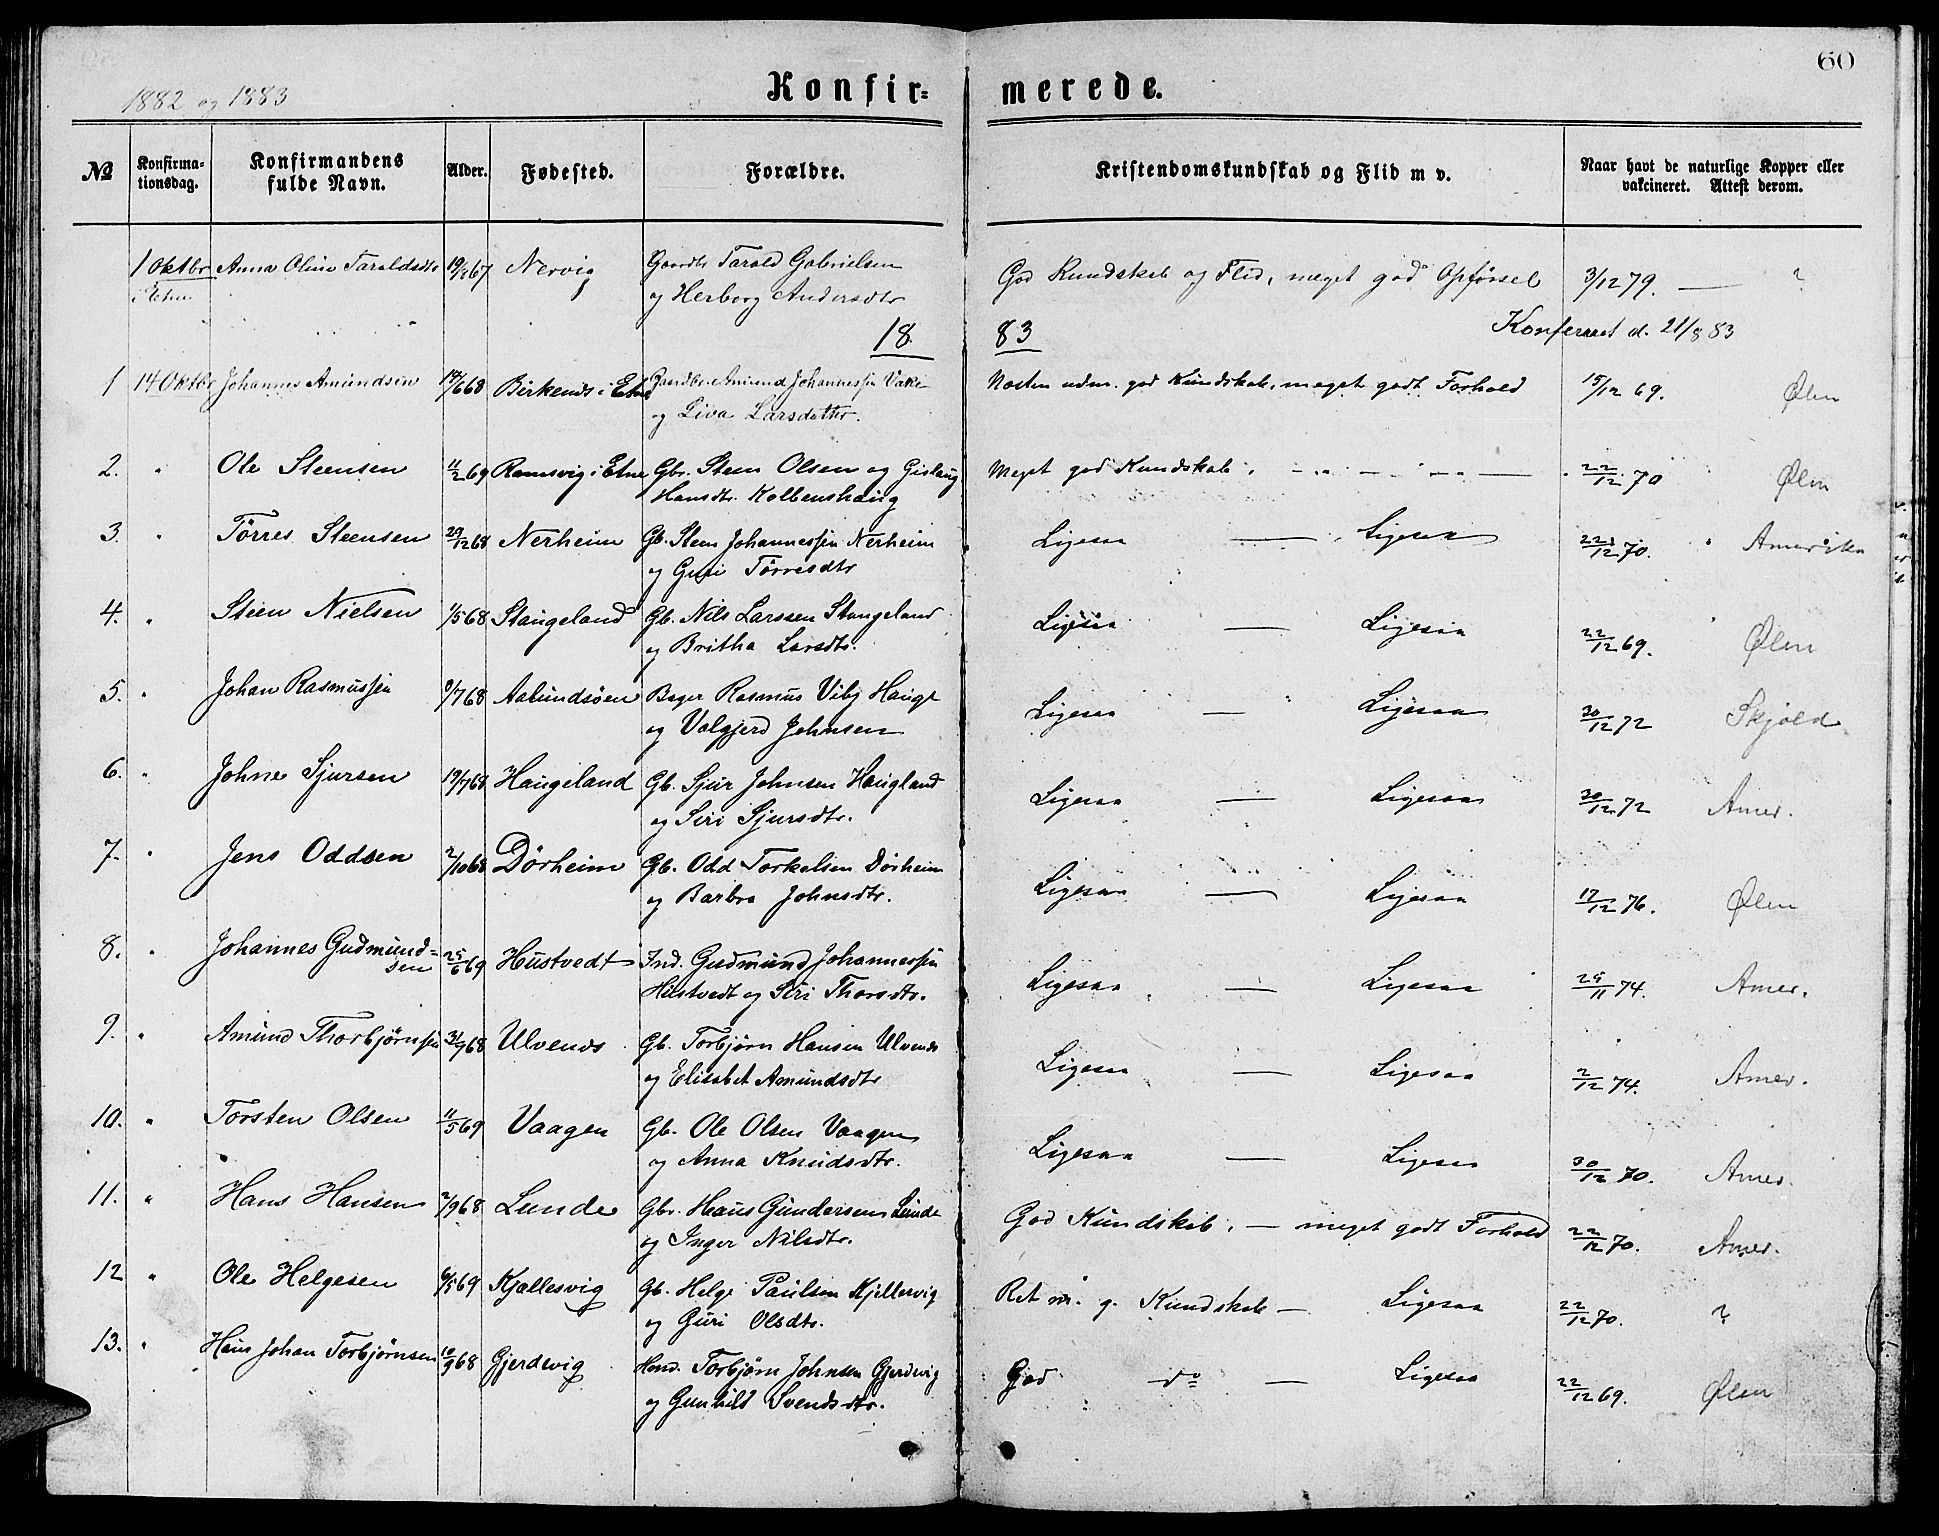 60
1882 og 1883
Konfir= merede.
No Konfirma-tionsdag. Konfirmandens fulde Navn. Alder. Fødested. Forældre. Kristendomskundskab og Flid m v. Naar havt de naturlige Kopper eller vakcineret. Attest derom.
1 Oktbr Anna Oline Taraldsdtr 19/8 67 Nervig Gaardbr Tarald Gabrielsen God Kundskab og Flid, meget god Opførsel 3/12 79. — ?
i Etne og Herborg Andersdtr
18 83 Konfereret d. 21/8 83
1 14 Oktbr Johannes Amundsen 14/6 68 Birkenes i Etne Gaardbr. Amund Johannessen Vake Næsten udm. god Kundskab, meget godt Forhold 15/12 69. Ølen
og Liva Larsdatter.
2. " Ole Steensen 11/2 69 Ramsvig i Etne Gbr. Steen Olsen og Gislaug Meget god Kundskab, - " - " - 22/12 70 " Ølen
Hansdtr. Kolbenshaug
3. " Tørres Steensen 29/12 68 Nerheim Gb. Steen Johannessen Nerheim Ligesaa — Ligesaa 22/12 70. " Amerika
og Guri Tørresdtr
4. " Steen Nielsen 1/5 68 Stangeland Gb. Nils Larssen Stangeland Ligesaa — Ligesaa 22/12 69. " Ølen
og Britha Larsdtr.
5. " Johan Rasmussen 8/7 68 Aalundsøen Bager Rasmus Viby Hauge Ligesaa — Ligesaa 30/12 72 Skjold
og Valgjerd Johnsen
6. " Johne Sjursen 19/7 68 Haugeland Gb. Sjur Johnsen Haugland Ligesaa — Ligesaa 30/12 72 Amer.
og Siri Sjursdtr.
7. " Jens Oddsen 2/10 68 Dørheim Gb. Odd Torkelsen Dørheim Ligesaa — Ligesaa 17/12 76. Ølen
og Barbra Johnsdtr.
8. " Johannes Gudmund= 25/6 69 Hustvedt Ind. Gudmund Johannessen Ligesaa — Ligesaa 29/11 74. Amer.
sen Hustvedt og Siri Thorsdtr.
9. " Amund Thorbjørnsen 31/7 68 Ulvenes Gb. Torbjørn Hansen Ulvenes Ligesaa — Ligesaa 2/12 74. Amer.
og Elisabet Amundsdtr
10. " Torsten Olsen 11/5 69 Vaagen Gb. Ole Olsen Vaagen Ligesaa — Ligesaa 30/12 70. Amer.
og Anna Knudsdtr.
11. " Hans Hansen 2/9 68 Lunde Gbr. Hans Gundersen Lunde God Kundskab. — meget godt Forhold 22/12 70. Amer.
og Inger Nilsdtr.
12 " Ole Helgesen 6/5 69 Kjallesvig Gb. Helge Paulsen Kjellesvig Ret m. g. Kundskab — Ligesaa 22/12 70. ?
og Guri Olsdtr.
13. " Hans Johan Torbjørnsen 10/9 68 Gjerdevig Hmd. Torbjørn Johnsen Gjerdevig God do — Ligesaa 22/12 69. Ølen
og Gunhild Svendsdtr.